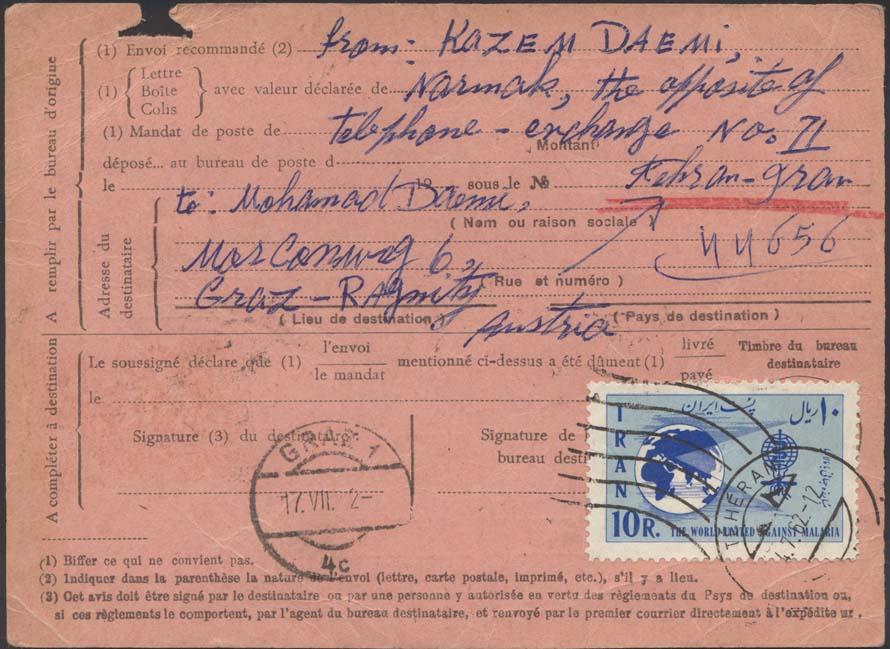 A remplir par le bureau d'origine
(1) Envoi recommandé (2) from: KAZEM DAEMi,
(1) { Lettre Boîte Colis } avec valeur déclarée de Narmak, the opposite of
(1) Mandat de poste de telephone - exchange No. 71
Montant
déposé... au bureau de poste d
le 19 sous le № Tehran-Iran
Adresse du destinataire
to: Mohamad Daemi,
( Nom ou raison sociale )
44656
( Rue et numéro )
Graz - Ragnitz
( Lieu de destination )
Austria
( Pays de destination )
A compléter à destination
Le soussigné déclare que (1) l'envoi le mandat mentionné ci-dessus a été dûment (1) livré payé
Timbre du bureau destinataire
le
Signature (3) du destinataire:
Signature de
bureau desti
GRAZ 1
17.VII. 2-
4c
پست ایران
۱۰ ریال
IRAN
10 R. THE WORLD UNITED AGAINST MALARIA
TEHERAN
62-12
(1) Biffer ce qui ne convient pas.
(2) Indiquer dans la parenthèse la nature de l'envoi (lettre, carte postale, imprimé, etc.), s'il y a lieu.
(3) Cet avis doit être signé par le destinataire ou par une personne y autorisée en vertu des règlements du Psys de destination ou,
si ces règlements le comportent, par l'agent du bureau destinataire, et renvoyé par le premier courrier directement à l'expédite ur.